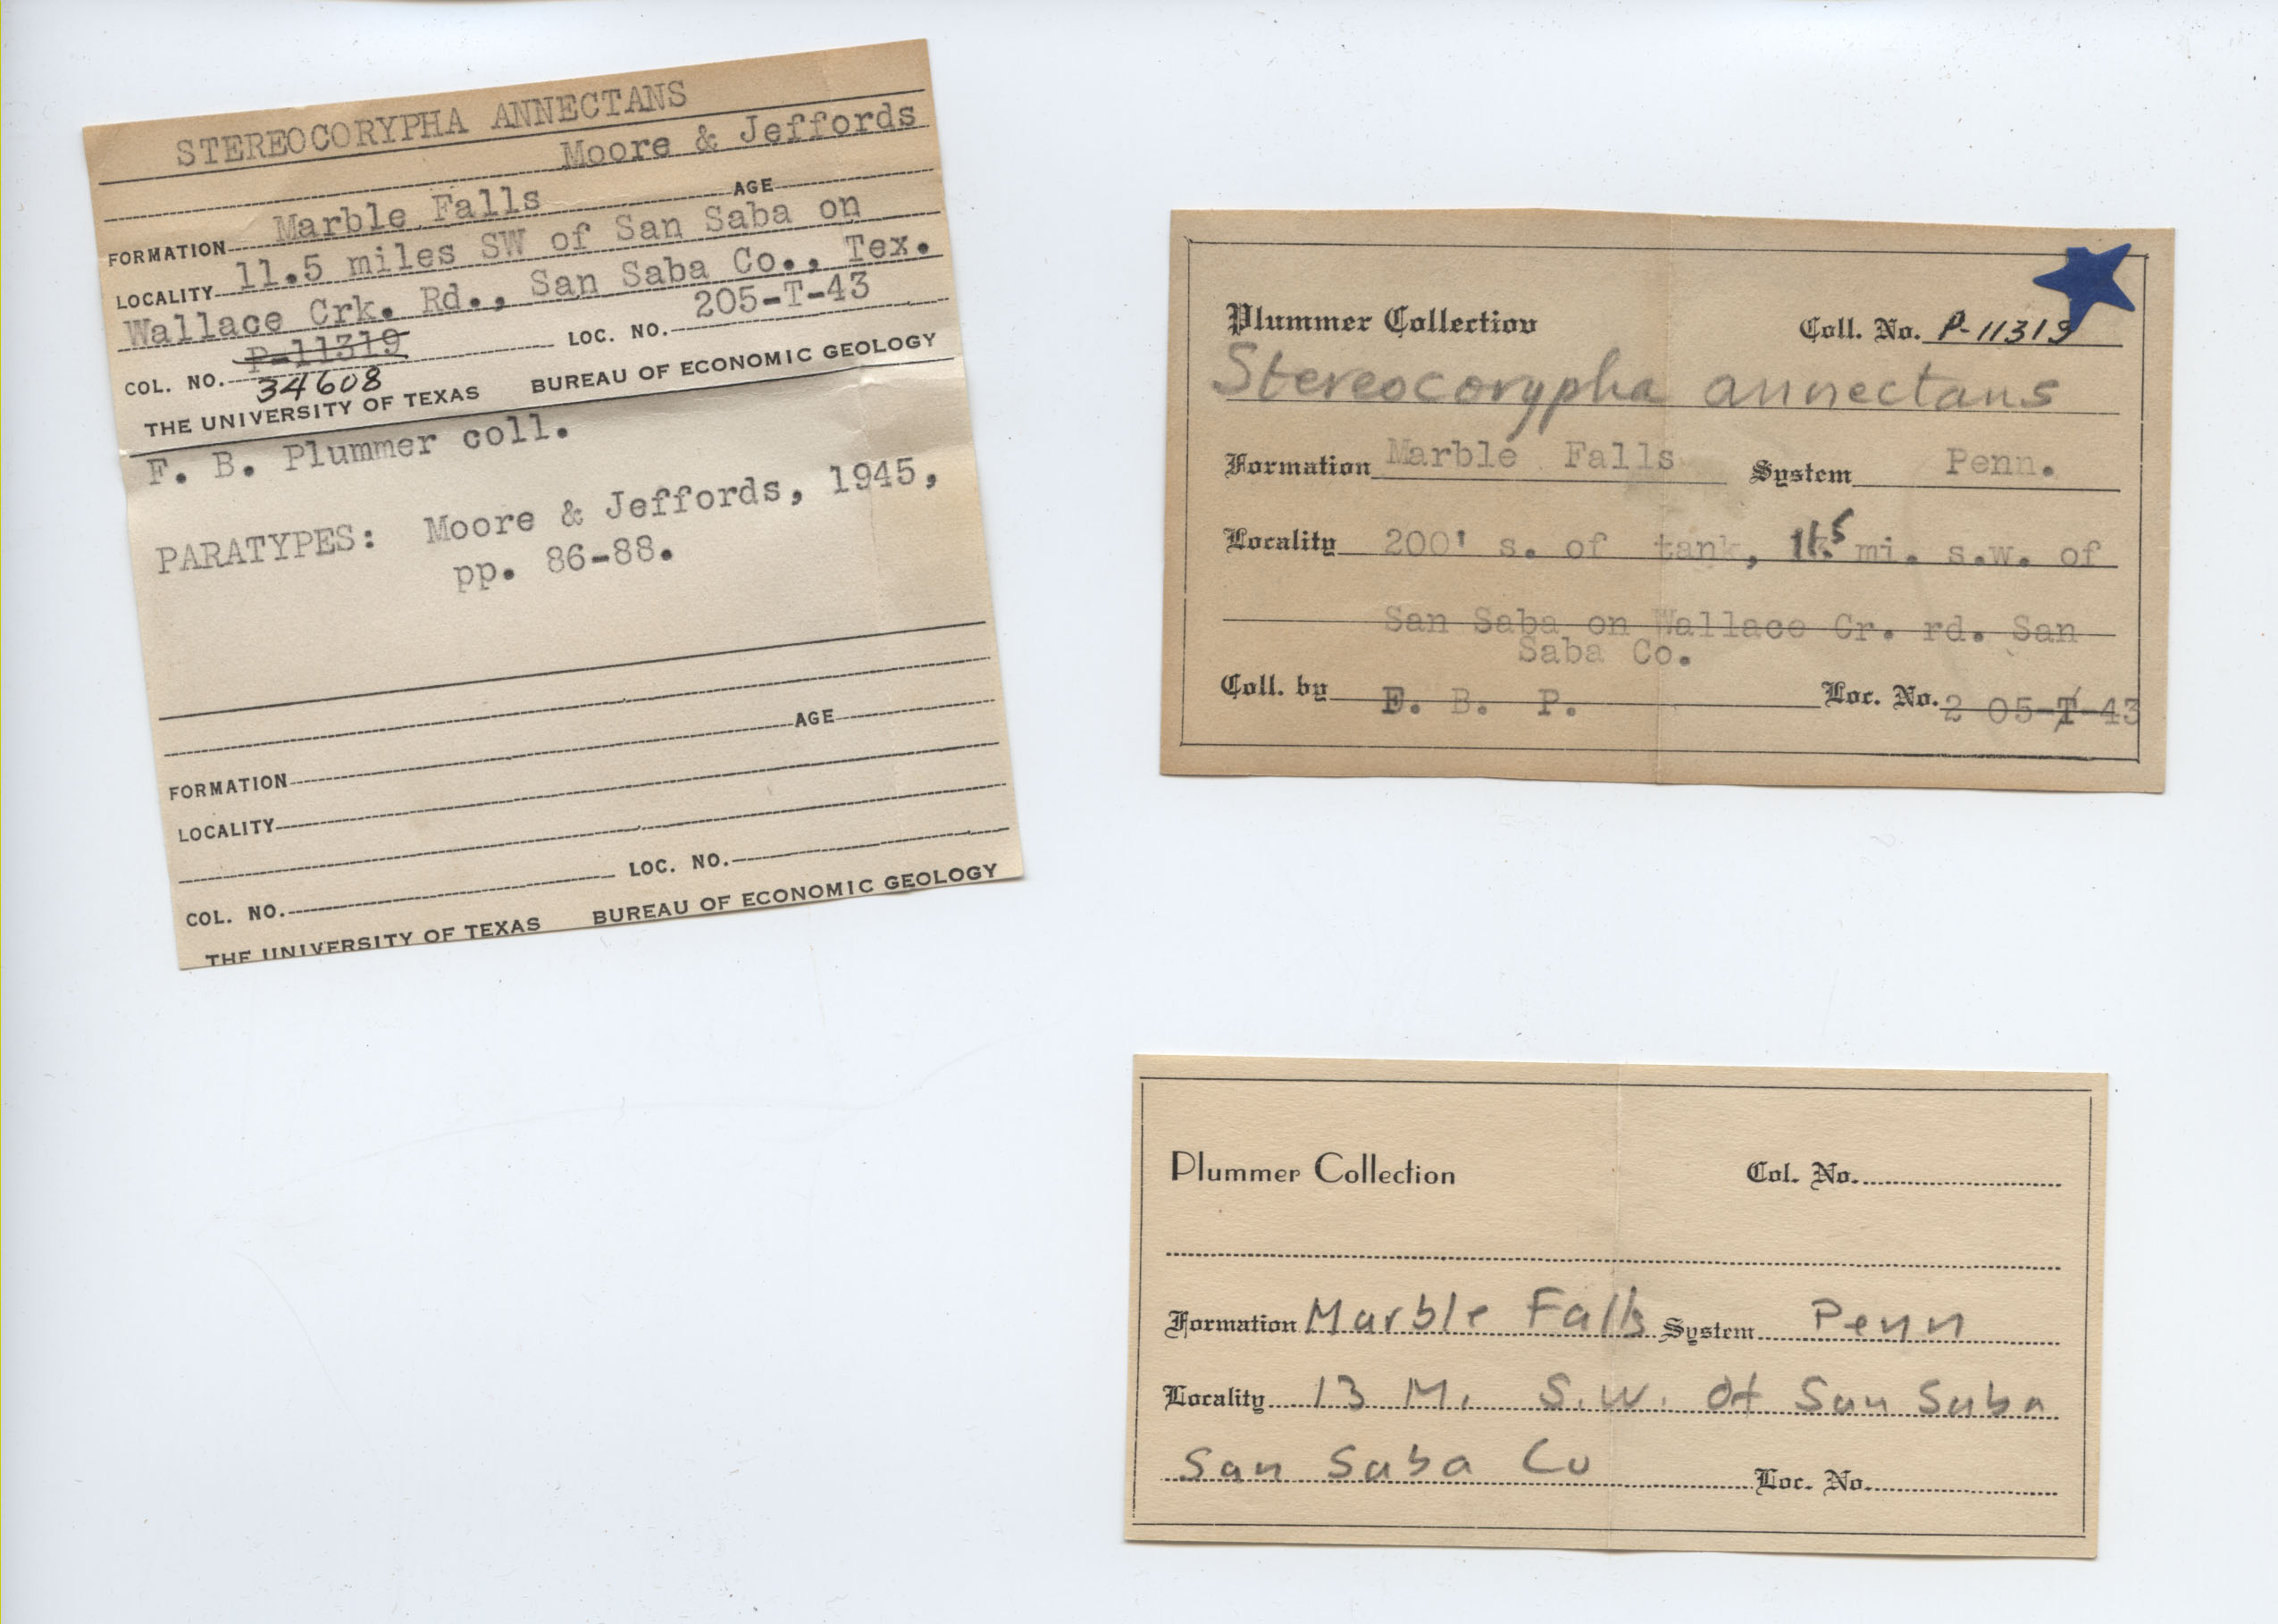 STEREOCORYPHA ANNECTANS
Moore & Jeffords
AGE
FORMATION Marble Falls
LOCALITY 11.5 miles SW of San Saba on
Wallace Crk. Rd., San Saba Co., Tex.
COL. NO. P-11319 LOC. NO. 205-T-43
34608
THE UNIVERSITY OF TEXAS BUREAU OF ECONOMIC GEOLOGY
F. B. Plummer coll.
PARATYPES: Moore & Jeffords, 1945,
pp. 86-88.
AGE
FORMATION
LOCALITY
COL. NO. LOC. NO.
THE UNIVERSITY OF TEXAS BUREAU OF ECONOMIC GEOLOGY
Plummer Collection Coll. No. P-11319
Stereocorypha annectans
Formation Marble Falls System Penn.
Locality 200' s. of tank, 11.5 mi. s.w. of
San Saba on Wallace Cr. rd. San
Saba Co.
Coll. by F. B. P. Loc. No. 205-T-43
Plummer Collection Col. No.
Formation Marble Falls System Penn
Locality 13 M. S.W. of San Saba
San Saba Co Loc. No.